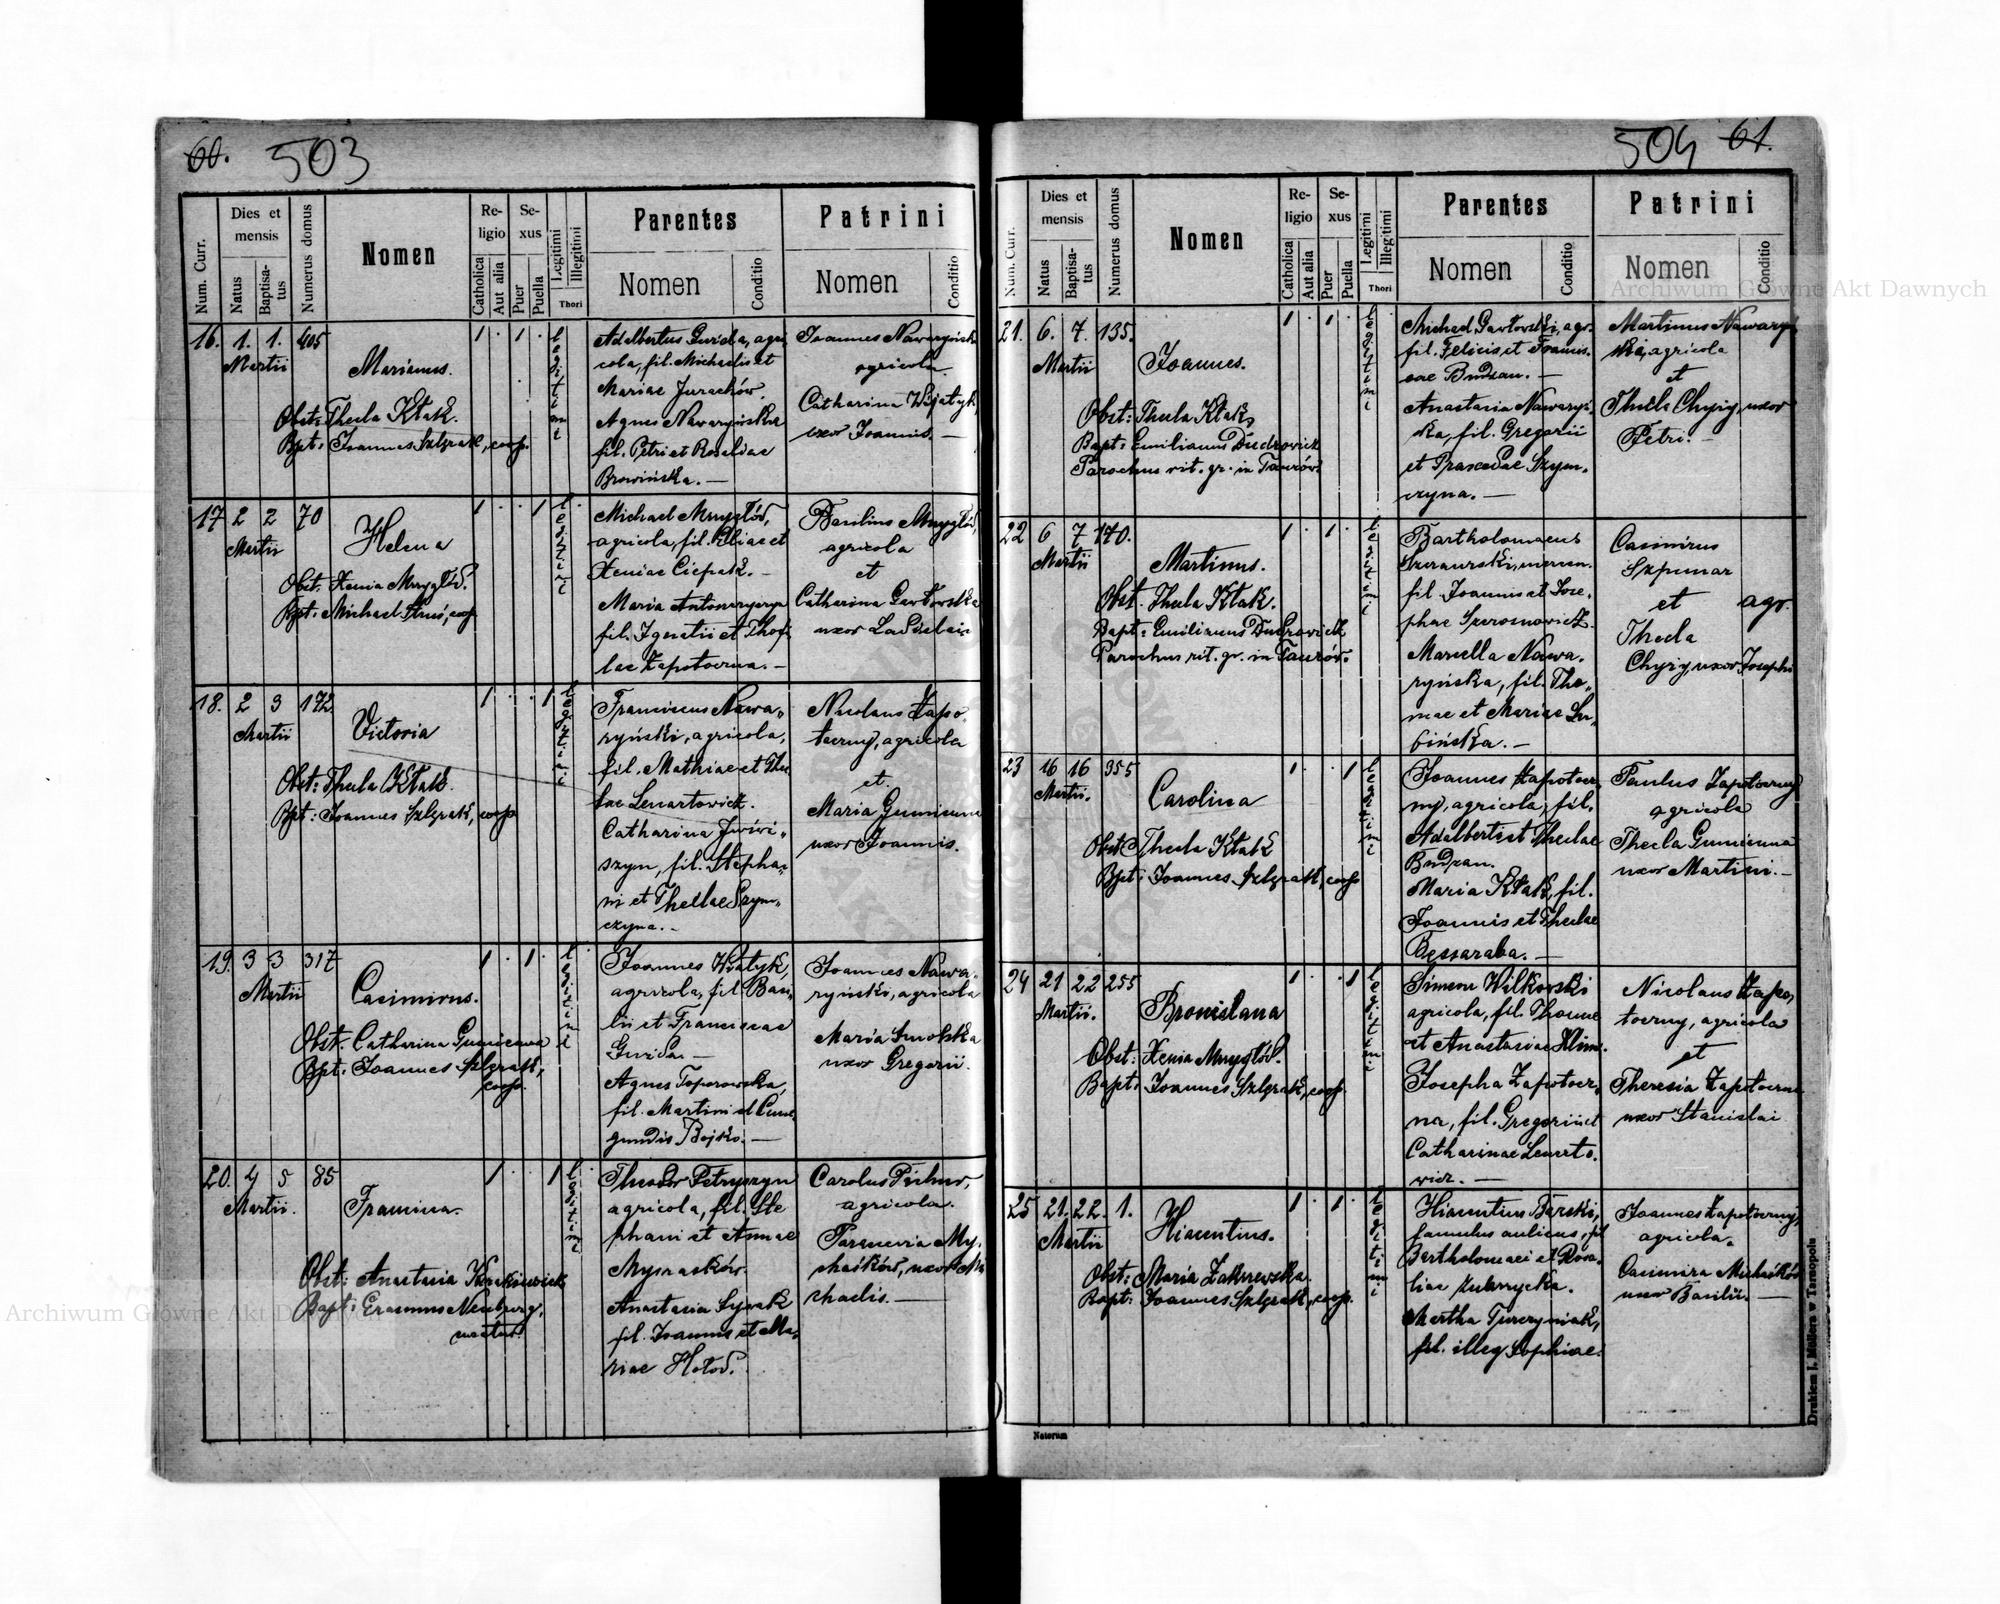 60. 503
Num. Curr.
Dies et mensis
Natus
Baptisatus
Numerus domus
Nomen
Religio
Catholica
Aut alia
Sexus
Puer
Puella
Legitimi
Illegitimi
Thori
Parentes
Nomen
Conditio
Patrini
Nomen
Conditio
16. 1. 1. 405
Martii
Marianus.
Obst: Thecla Kłak.
Bpt: Joannes Szlęzak, coop.
1 . 1 .
legitimi
Adalbertus Gwizda, agri
cola, fil. Michaelis et
Mariae Jurachów.
Agnes Nawaryńska
fil. Petri et Rosaliae
Browińska. —
Joannes Nawaryński
agricola
Catharina Wijatyk
uxor Joannis. —
17 2 2 70
Martii
Helena
Obst. Xenia Mrygłód.
Bpt: Michael Struś, coop.
1 . . 1
legitimi
Michael Mrygłód,
agricola, fil. Eliae et
Xeniae Ciepak. —
Maria Antonczyszyn
fil. Ignatii et Theofi
lae Zapotoczna. —
Basilius Mrygłód,
agricola
et
Catharina Gawłowska
uxor Ladislai
18. 2 3 172.
Martii
Victoria
Obst: Thecla Kłak.
Bpt: Joannes Szlęzak, coop
1 . . 1
legitimi
Franciscus Nawa„
ryński, agricola,
fil. Mathiae et The
clae Lenartowicz.
Catharina Iwiri„
szyn, fil. Stepha„
ni et Theclae Szym„
czyna. -
Nicolaus Zapo„
toczny, agricola
et
Maria Gumienna
uxor Joannis.
19. 3 3 317
Martii
Casimirus.
Obst. Catharina Gumienna
Bpt: Joannes Szlęzak,
coop.
1 . 1 .
legitimi
Joannes Wijatyk,
agricola, fil Basi„
lii et Franciscae
Gwizda. —
Agnes Toporowska,
fil. Martini et Cune„
gundis Bojko. —
Joannes Nawa„
ryński, agricola
Maria Smolska
uxor Gregorii.
20. 4 5 85
Martii.
Francisca.
Obst: Anastasia
Bapt: Erasmus Neuburg,
1 . . 1
legitimi
Theodor Petryszyn
agricola, fil. Ste
phani et Annae
Anastasia Sysak
fil. Joannis et Ma„
riae Hołod.
Carolus
agricola.
Parascevia My„
chaśków, uxor Mi
chaelis. —
504 61.
Num. Curr.
Dies et mensis
Natus
Baptisatus
Numerus domus
Nomen
Religio
Catholica
Aut alia
Sexus
Puer
Puella
Legitimi
Illegitimi
Thori
Parentes
Nomen
Conditio
Patrini
Nomen
Conditio
Archiwum Główne Akt Dawnych
21. 6. 7. 135.
Martii
Joannes.
Obst: Thecla Kłak,
Bapt: Emilianus Dudrowicz
Parochus rit. gr. in Taurów.
1 . 1 .
legitimi
Michael Gawłowski, agr.
fil. Felicis et Francis.
cae Budzan. —
Anastasia Nawaryń.
ska, fil. Gregorii
et Praxedae Szym.
czyna. —
Martinus Nawaryń
ski, agricola
et
Thecla Chyży, uxor
Petri. —
22 6 7 170.
Martii
Martinus.
Obst. Thecla Kłak.
Bapt: Emilianus Dudrowicz
Parochus rit. gr. in Taurów.
1 . 1 .
legitimi
Bartholomaeus
fil. Joannis et Jose„
phae
Marcella Nawa.
ryńska, fil. Tho„
mae et Mariae Lu„
bińska. —
Casimirus
Szpunar
et agr.
Thecla
Chyży, uxor Josephi
23 16 16 355
Martii.
Carolina
Obst: Thecla Kłak
Bpt: Joannes Szlęzak, coop
1 . . 1
legitimi
Joannes Zapotocz„
ny, agricola, fil.
Adalberti et Theclae
Budzan.
Maria Kłak, fil.
Joannis et Theclae
Bessaraba. —
Paulus Zapotoczny
agricola
Thecla Gumienna
uxor Martini. —
24 21 22 255
Martii.
Bronislana
Obst: Xenia Mrygłód.
Bapt: Joannes Szlęzak, coop.
1 . . 1
legitimi
Simeon Wilkowski
agricola, fil. Thomae
et Anastasiae Klim.
Josepha Zapotocz„
na, fil. Gregorii et
Catharinae Lenarto.
wicz. —
Nicolaus Zapo„
toczny, agricola
et
Theresia Zapotoczna
uxor Stanislai
25 21. 22. 1.
Martii
Hiacintus.
Obst: Maria Zakrzewska.
Bapt: Joannes Szlęzak, coop.
1 . 1 .
legitimi
Hiacintus Barski,
famulus aulicus, fil
Bartholomaei et Rosa.
liae
Martha Turczyniak,
fil. illeg Sophiae.
Joannes Zapotoczny,
agricola.
Casimira Michaśków
uxor Basilii. —
Natorum
Drukiem J. Mellera w Tarnopolu
Archiwum Główne Akt Dawnych